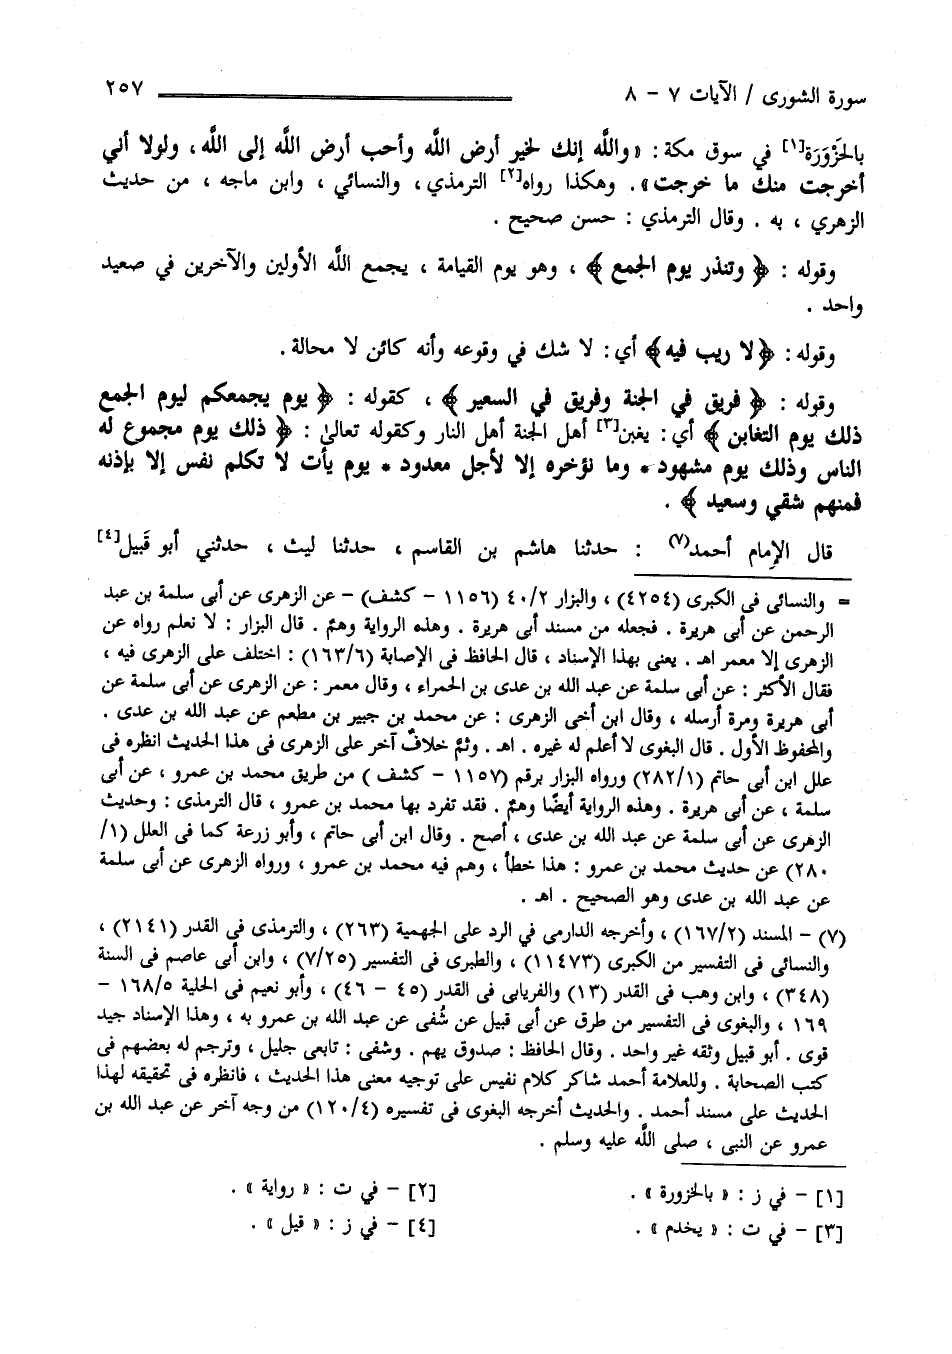 سورة الشورى / الآيات ٧ - ٨ ٢٥٧
بالحَزْوَرَة[١] في سوق مكة : «والله إنك لخير أرض الله وأحب أرض الله إلى الله ، ولولا أني
أخرجت منك ما خرجت» . وهكذا رواه[٢] الترمذي ، والنسائي ، وابن ماجه ، من حديث
الزهري ، به . وقال الترمذي : حسن صحيح .
وقوله : ﴿ وتنذر يوم الجمع ﴾ ، وهو يوم القيامة ، يجمع الله الأولين والآخرين في صعيد
واحد .
وقوله : ﴿لا ريب فيه﴾ أي : لا شك في وقوعه وأنه كائن لا محالة .
وقوله : ﴿ فريق في الجنة وفريق في السعير ﴾ ، كقوله : ﴿ يوم يجمعكم ليوم الجمع
ذلك يوم التغابن ﴾ أي : يغبن[٣] أهل الجنة أهل النار وكقوله تعالى : ﴿ ذلك يوم مجموع له
الناس وذلك يوم مشهود * وما نؤخره إلا لأجل معدود * يوم يأت لا تكلم نفس إلا بإذنه
فمنهم شقي وسعيد ﴾ .
قال الإمام أحمد(٧) : حدثنا هاشم بن القاسم ، حدثنا ليث ، حدثني أبو قَبيل[٤]
= والنسائى فى الكبرى (٤٢٥٤) ، والبزار ٤٠/٢ (١١٥٦ - كشف) - عن الزهرى عن أبى سلمة بن عبد
الرحمن عن أبى هريرة . فجعله من مسند أبى هريرة . وهذه الرواية وهمٌ . قال البزار : لا نعلم رواه عن
الزهرى إلا معمر اهـ . يعنى بهذا الإسناد ، قال الحافظ فى الإصابة (١٦٣/٦) : اختلف على الزهرى فيه ،
فقال الأكثر : عن أبى سلمة عن عبد الله بن عدى بن الحمراء ، وقال معمر : عن الزهرى عن أبى سلمة عن
أبى هريرة ومرة أرسله ، وقال ابن أخى الزهرى : عن محمد بن جبير بن مطعم عن عبد الله بن عدى .
والمحفوظ الأول . قال البغوى لا أعلم له غيره . اهـ . وثمَّ خلافٌ آخر على الزهرى فى هذا الحديث انظره فى
علل ابن أبى حاتم (٢٨٢/١) ورواه البزار برقم (١١٥٧ - كشف ) من طريق محمد بن عمرو ، عن أبى
سلمة ، عن أبى هريرة . وهذه الرواية أيضًا وهمٌ . فقد تفرد بها محمد بن عمرو ، قال الترمذى : وحديث
الزهرى عن أبى سلمة عن عبد الله بن عدى ، أصح . وقال ابن أبى حاتم ، وأبو زرعة كما فى العلل (١/
٢٨٠) عن حديث محمد بن عمرو : هذا خطأ ، وهم فيه محمد بن عمرو ، ورواه الزهرى عن أبى سلمة
عن عبد الله بن عدى وهو الصحيح . اهـ .
(٧) - المسند (١٦٧/٢) ، وأخرجه الدارمى في الرد على الجهمية (٢٦٣) ، والترمذى فى القدر (٢١٤١) ،
والنسائى فى التفسير من الكبرى (١١٤٧٣) ، والطبرى فى التفسير (٧/٢٥) ، وابن أبى عاصم فى السنة
(٣٤٨) ، وابن وهب فى القدر (١٣) والفريابى فى القدر (٤٥ - ٤٦) ، وأبو نعيم فى الحلية ١٦٨/٥ -
١٦٩ ، والبغوى فى التفسير من طرق عن أبى قبيل عن شُفى عن عبد الله بن عمرو به ، وهذا الإسناد جيد
قوى . أبو قبيل وثقه غير واحد . وقال الحافظ : صدوق يهم . وشفى : تابعى جليل ، وترجم له بعضهم فى
كتب الصحابة . وللعلامة أحمد شاكر كلام نفيس على توجيه معنى هذا الحديث ، فانظره فى تحقيقه لهذا
الحديث على مسند أحمد . والحديث أخرجه البغوى فى تفسيره (١٢٠/٤) من وجه آخر عن عبد الله بن
عمرو عن النبى ، صلى الله عليه وسلم .
[١] - في ز : « بالخزورة » . [٢] - في ت : « رواية » .
[٣] - في ت : « يخدم » . [٤] - في ز : « قيل » .